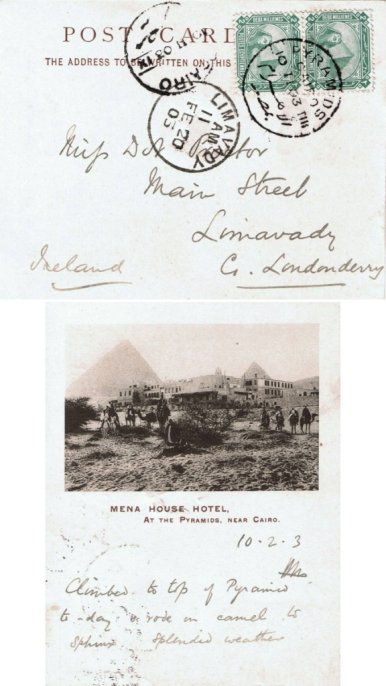 POST CARD
THE ADDRESS TO BE WRITTEN ON THIS
DEUX MILLIEMES DEUX MILLIEMES
CAIRO
PYRAMIDS
LIMAVADY
11 AM
FE 20
03
Miss D
Main Street
Limavady
Ireland
Co. Londonderry
MENA HOUSE HOTEL,
AT THE PYRAMIDS, NEAR CAIRO.
10-2-3
Climbed to top of Pyramid
to-day & rode on camel to
Sphinx splendid weather